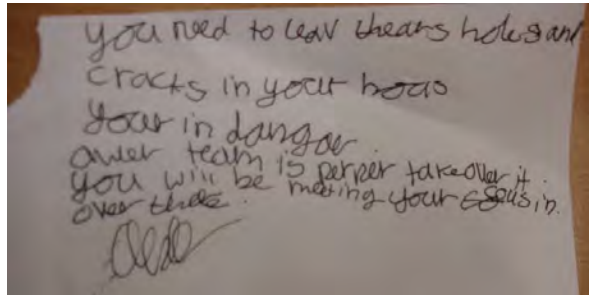 you need to leav thears holes and
cracks in your hous
your in dangar
anuer team is perper takeover it.
you will be meeting your cousin.
over there.